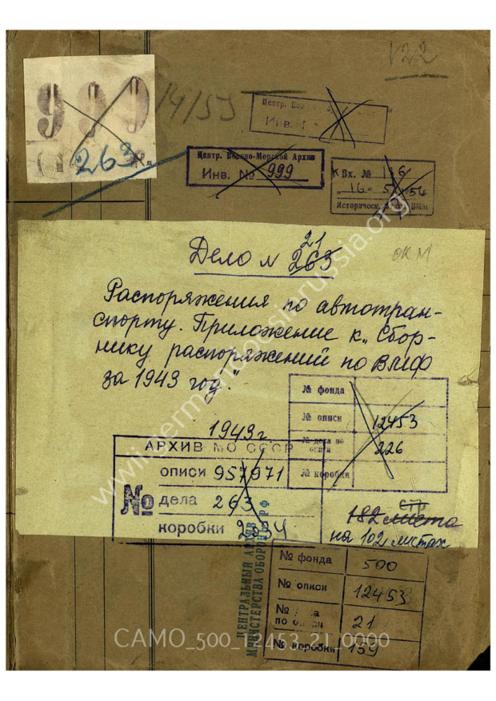 999
263
14/53
Центр. Военно-Морской Архив
Инв. № 999
К Вх. №
Дело № 263
21
ОКМ
Распоряжения по автотран-
спорту. Приложение к „Сбор-
нику распоряжений по ВМФ
за 1943 год."
1943г.
№ фонда
№ описи 12453
№ дела по описи 226
№ коробки
АРХИВ МО СССР
описи 957971
№ дела 263
коробки
182 листа
на 102 листах
ЦЕНТРАЛЬНЫЙ АРХИВ
МИНИСТЕРСТВА ОБОРОНЫ РФ
№ фонда 500
№ описи 12453
№ дела по описи 21
№ коробки 159
www.germandocsinrussia.org
CAMO_500_12453_21_0000